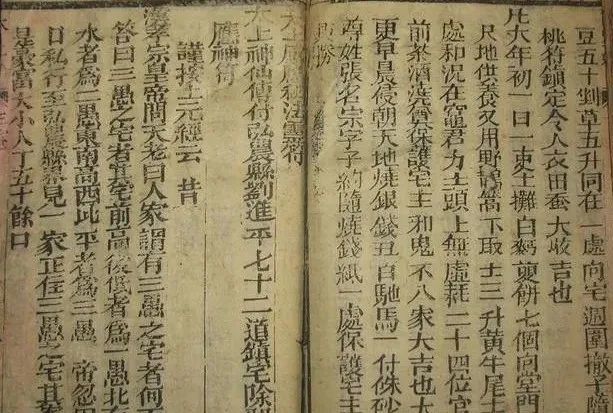 豆五十剉草五升同在一處向宅週圍撤子障
桃符鎮定令人衣田蚕大收吉也
凡大年初一日一束土攤白麪更餅七個向堂門
尺地供養又用野鵲窩下取土三升黄牛尾
處和況在竈君方土頭上無虛耗二十四位官
前茶酒澆奠保護宅主和鬼不八家大吉也
更早晨侵朝天地燒銀錢丑白馳馬一付硃砂
釋姓張名宗字子約隨燒錢紙一處保護宅主
大上神仙傳符弘農縣劉進平七十二道鎮宅除
應神符
謹按上元經云昔
漢孝宗皇帝問天老曰人家謂有三愚之宅者何
答曰三愚之宅者其宅前高後低者爲一愚北有
水者爲二愚東南高西北平者爲三愚帝忽
日私行至弘農縣界見一家正住三愚之宅其家
是豪富大小人丁五十餘口